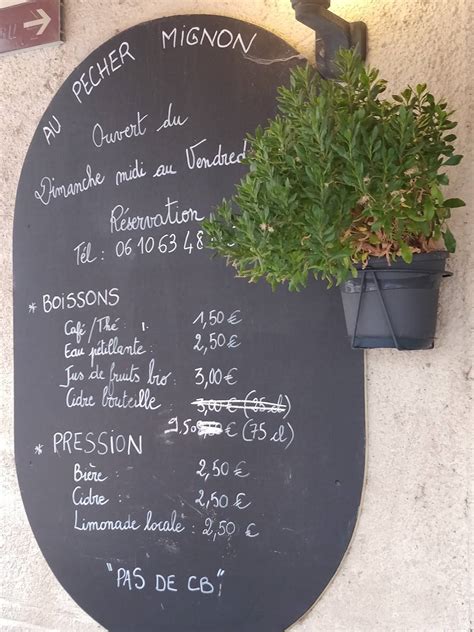 AU PECHER MIGNON
Ouvert du
Dimanche midi au Vendred
Réservation
Tél : 06 10 63 48
* BOISSONS
Café/Thé : 1,50 €
Eau pétillante : 2,50 €
Jus de fruits bio : 3,00 €
Cidre bouteille : 3,00 € (25 cl)
9.50 € (75 cl)
* PRESSION
Bière : 2,50 €
Cidre : 2,50 €
Limonade locale : 2,50 €
"PAS DE CB"